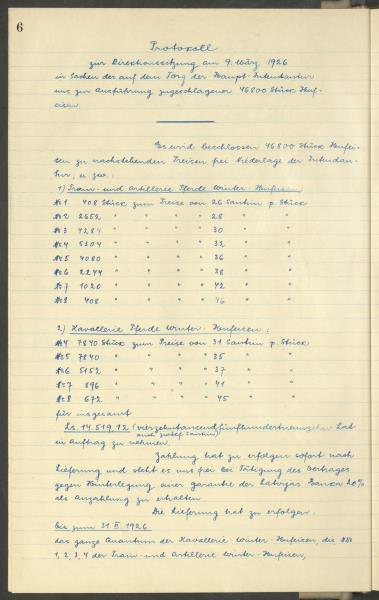 6
Protokoll
zur Direktionssitzung am 9. März 1926
in Sachen der auf dem Torg der Haupt-Intendantur
uns zur Ausführung zugeschlagener 46800 Stück Huf-
eisen.
Es wird beschlossen 46800 Stück Hufei-
sen zu nachstehenden Preisen frei Niederlage der Intendan-
tur, u. zw.:
1) Train- und Artillerie Pferde Winter-Hufeisen:
№ 1 408 Stück zum Preise von 26 Santim p. Stück
№ 2 2652 " " " " 28 " "
№ 3 4284 " " " " 30 " "
№ 4 5304 " " " " 32 " "
№ 5 4080 " " " " 36 " "
№ 6 2244 " " " " 38 " "
№ 7 1020 " " " " 42 " "
№ 8 408 " " " " 46 " "
2) Kavallerie Pferde Winter-Hufeisen:
№ 4 7840 Stück zum Preise von 31 Santim p. Stück
№ 5 7840 " " " " 35 " "
№ 6 5152 " " " " 37 " "
№ 7 896 " " " " 41 " "
№ 8 672 " " " " 45 " "
für insgesamt
Ls. 14.519,12 (vierzehntausendfünfhundertneunzehn Lat
auch zwölf Santim)
in Auftrag zu nehmen.
Zahlung hat zu erfolgen sofort nach
Lieferung und steht es uns frei bei Tätigung des Vertrages
gegen Hinterlegung einer Garantie der Latvijas Banka 20%
als Anzahlung zu erhalten.
Die Lieferung hat zu erfolgen:
bis zum 31. 1926
das ganze Quantum der Kavallerie Winter-Hufeisen, die №№
1, 2, 3, 4 der Train- und Artillerie Winter-Hufeisen,